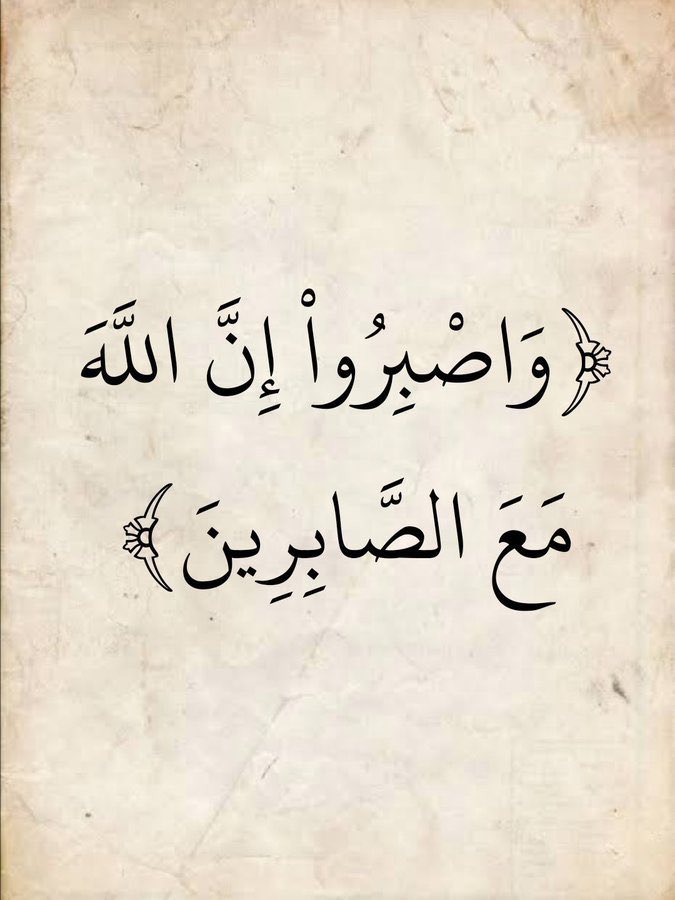 ﴿ وَاصْبِرُواْ إِنَّ اللَّهَ
مَعَ الصَّابِرِينَ ﴾